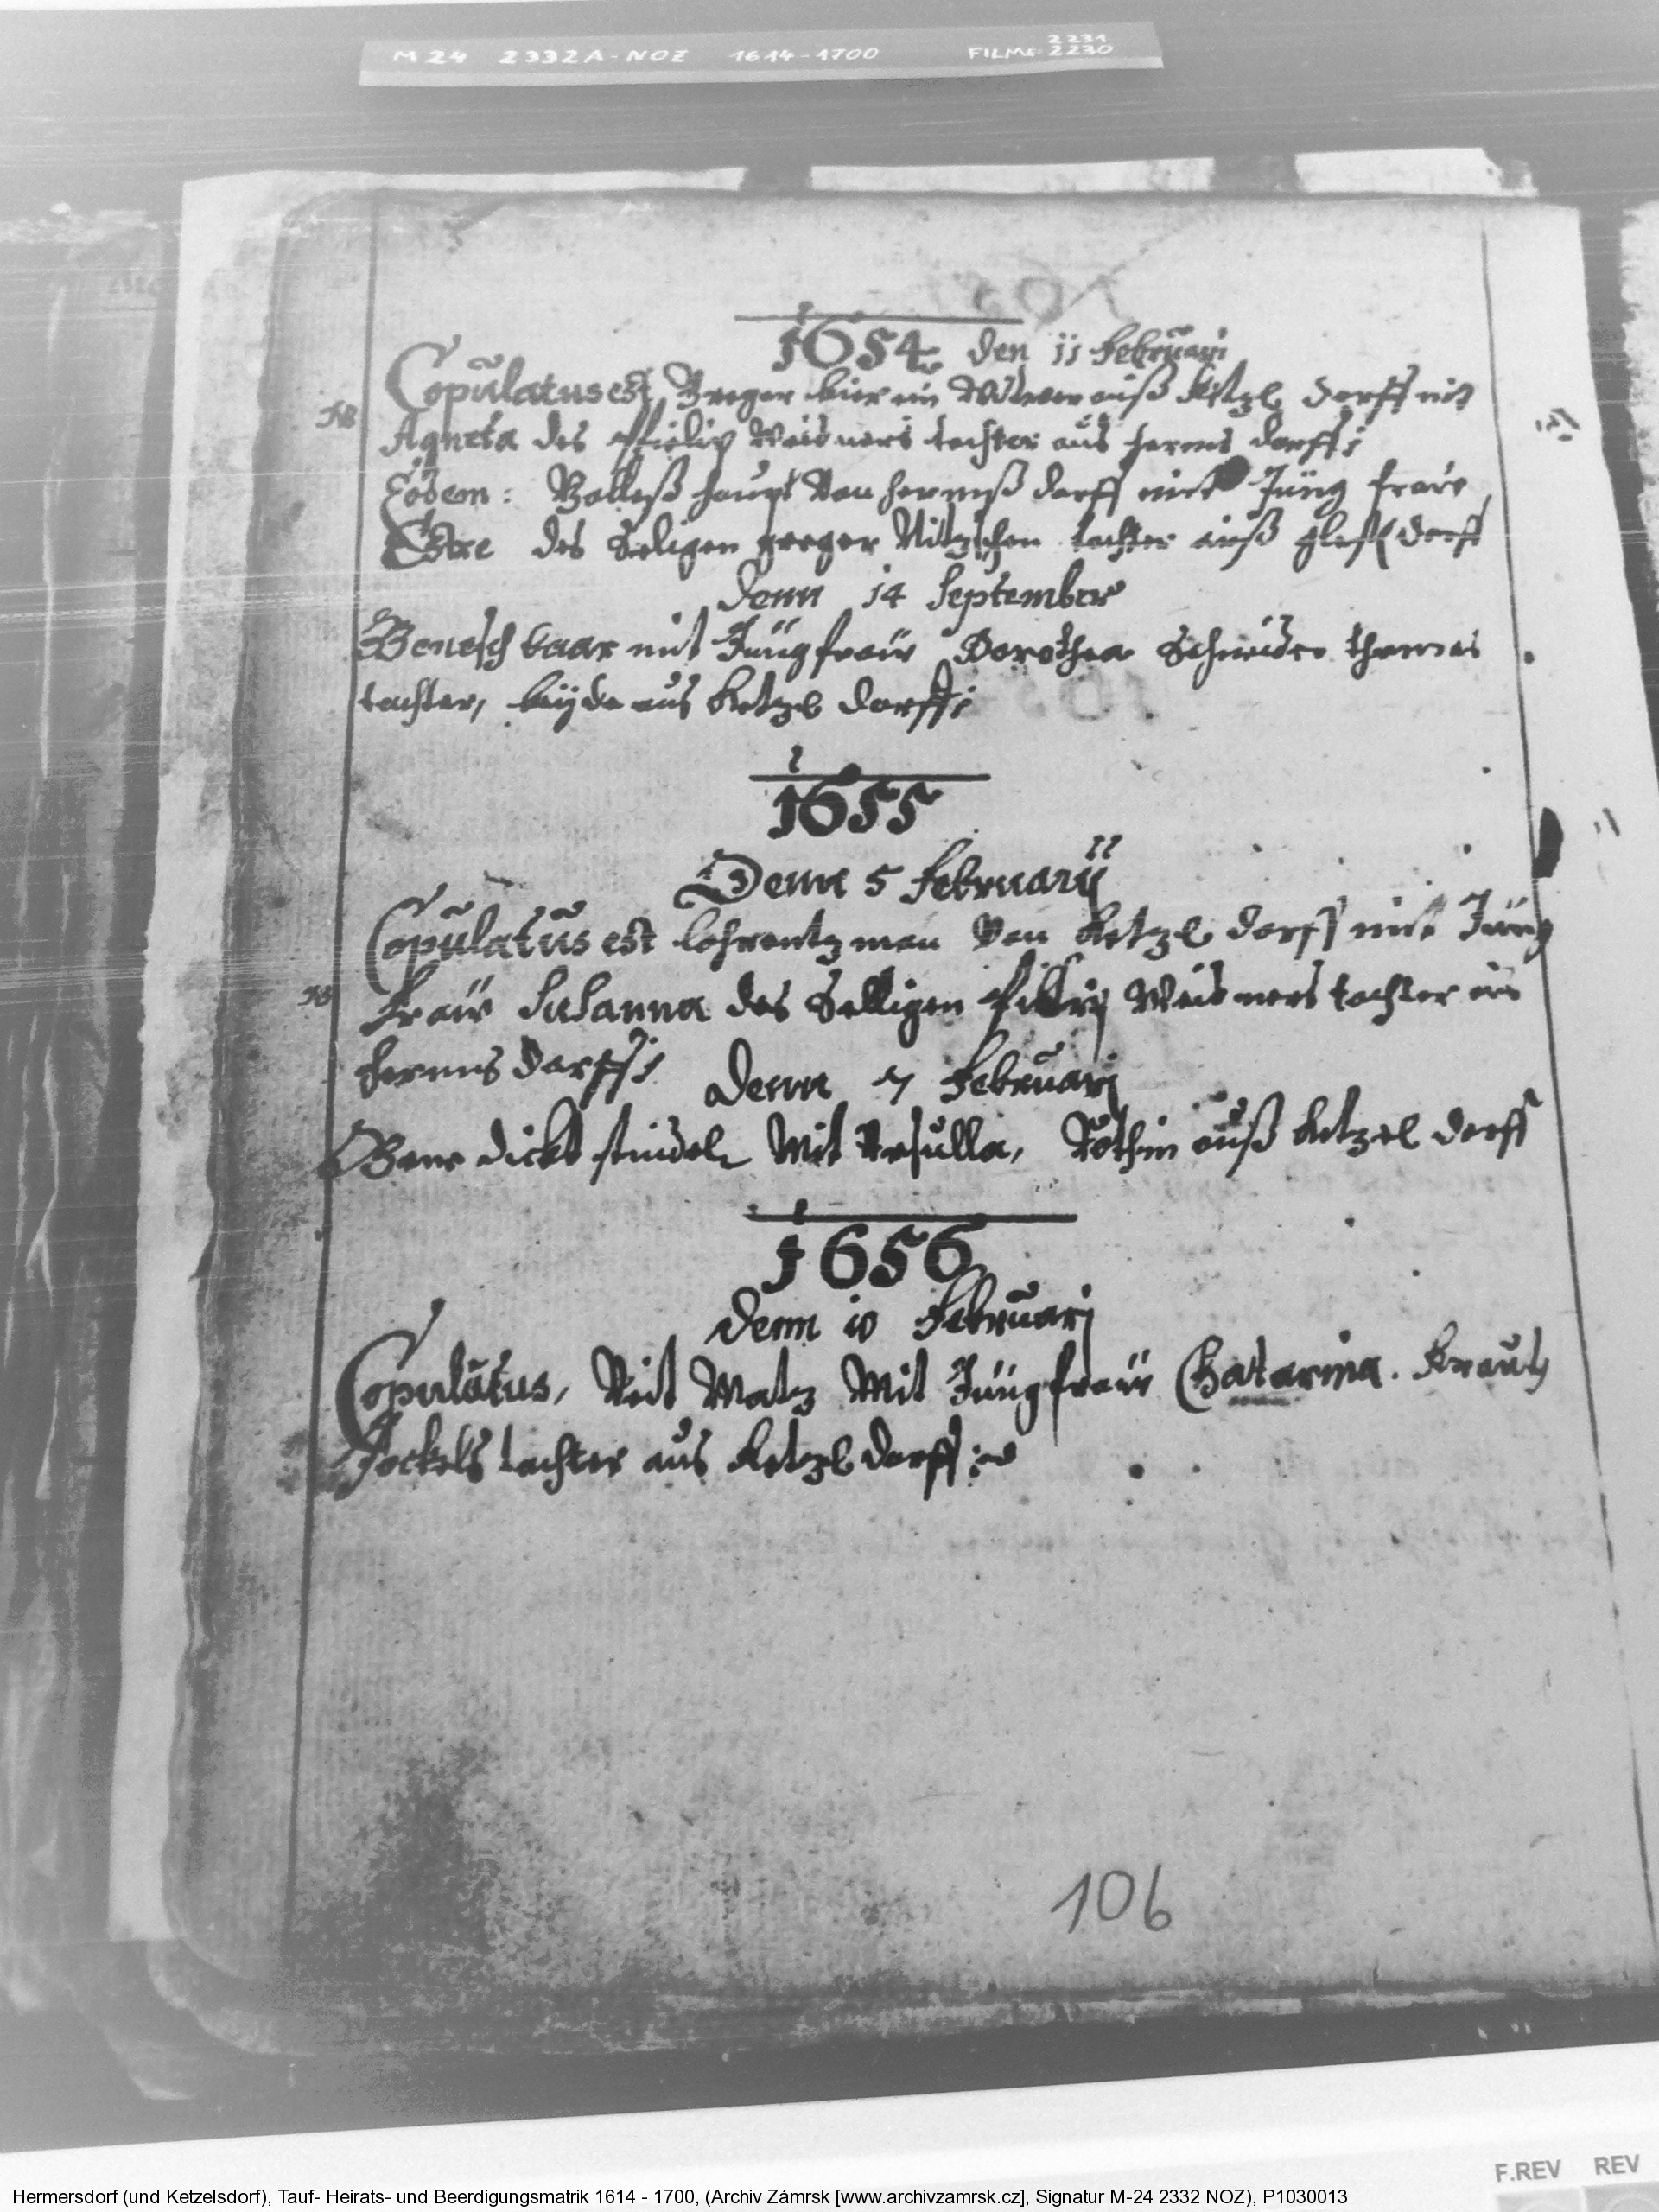 M 24 2332A-NOZ 1614-1700 FILM: 2231 2230
1654 den 11 Februarij
Copulatus est, Greger bier ein Witwer auß Ketzl dorff mit
Agneta des Weisners tochter aus herms dorff
Eodem: haupt Von hermß dorff mit Jung fraw
des Seligen greger Nitzschen tochter auß dorff
Denn 14 September
Benesch baar mit Jungfraw Dorothea Schneider thomas
tochter, beyde aus Ketzl dorff
1655
Denn 5 Februarij
Copulatus est lohrentz man Von Ketzl dorff mit Jung
fraw Susanna des Selligen Weisners tochter aus
herms dorff Denn 7 Februarj
Bene dickt stindel Mit Ursulla, Röthin auß Ketzel dorff
1656
Denn 10 Februarj
Copulatus, Veit Matz Mit Jungfraw Chatarina. Krautz
Jockels tochter aus Ketzl dorff
106
F.REV REV
Hermersdorf (und Ketzelsdorf), Tauf- Heirats- und Beerdigungsmatrik 1614 - 1700, (Archiv Zámrsk [www.archivzamrsk.cz], Signatur M-24 2332 NOZ), P1030013